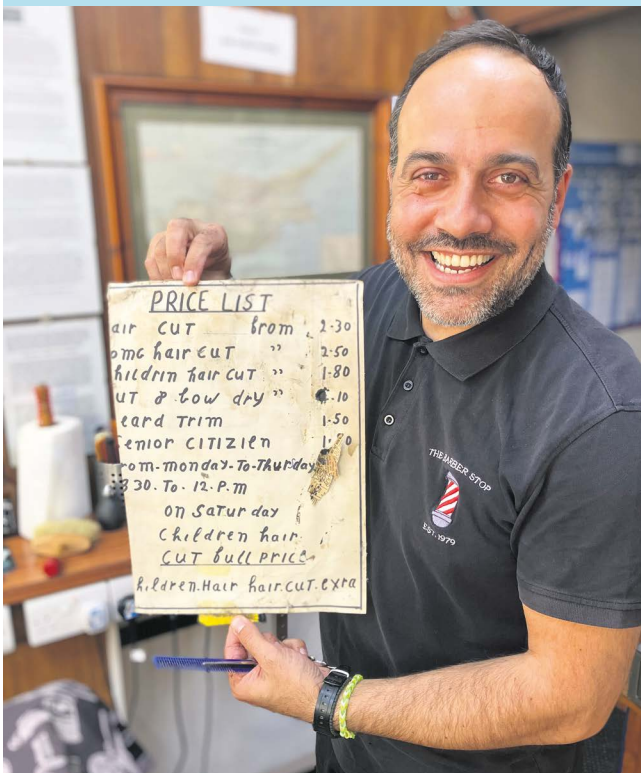 PRICE LIST
air CUT from 2-30
omg hair CUT " 2-50
hildrin hair CUT " 1-80
UT & bow dry " -10
eard Trim 1-50
enior CITIZIEn
rom-monday-To-Thursday
8 30. To. 12. P.m
on Satur day
Children hair
CUT full PriCe
hildren. Hair hair. CUT. extra
THE BARBER STOP
EST. 1979